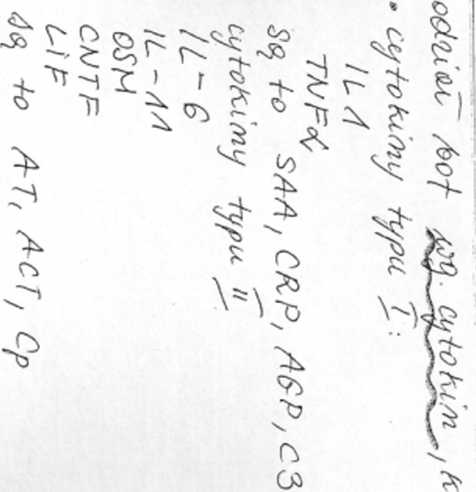 podział bot wg. cytokin, k
• cytokiny typu I:
IL1
TNFα
są to SAA, CRP, AGP, C3
cytokiny typu II
IL-6
IL-11
OSM
CNTF
LiF
są to AT, ACT, Cp